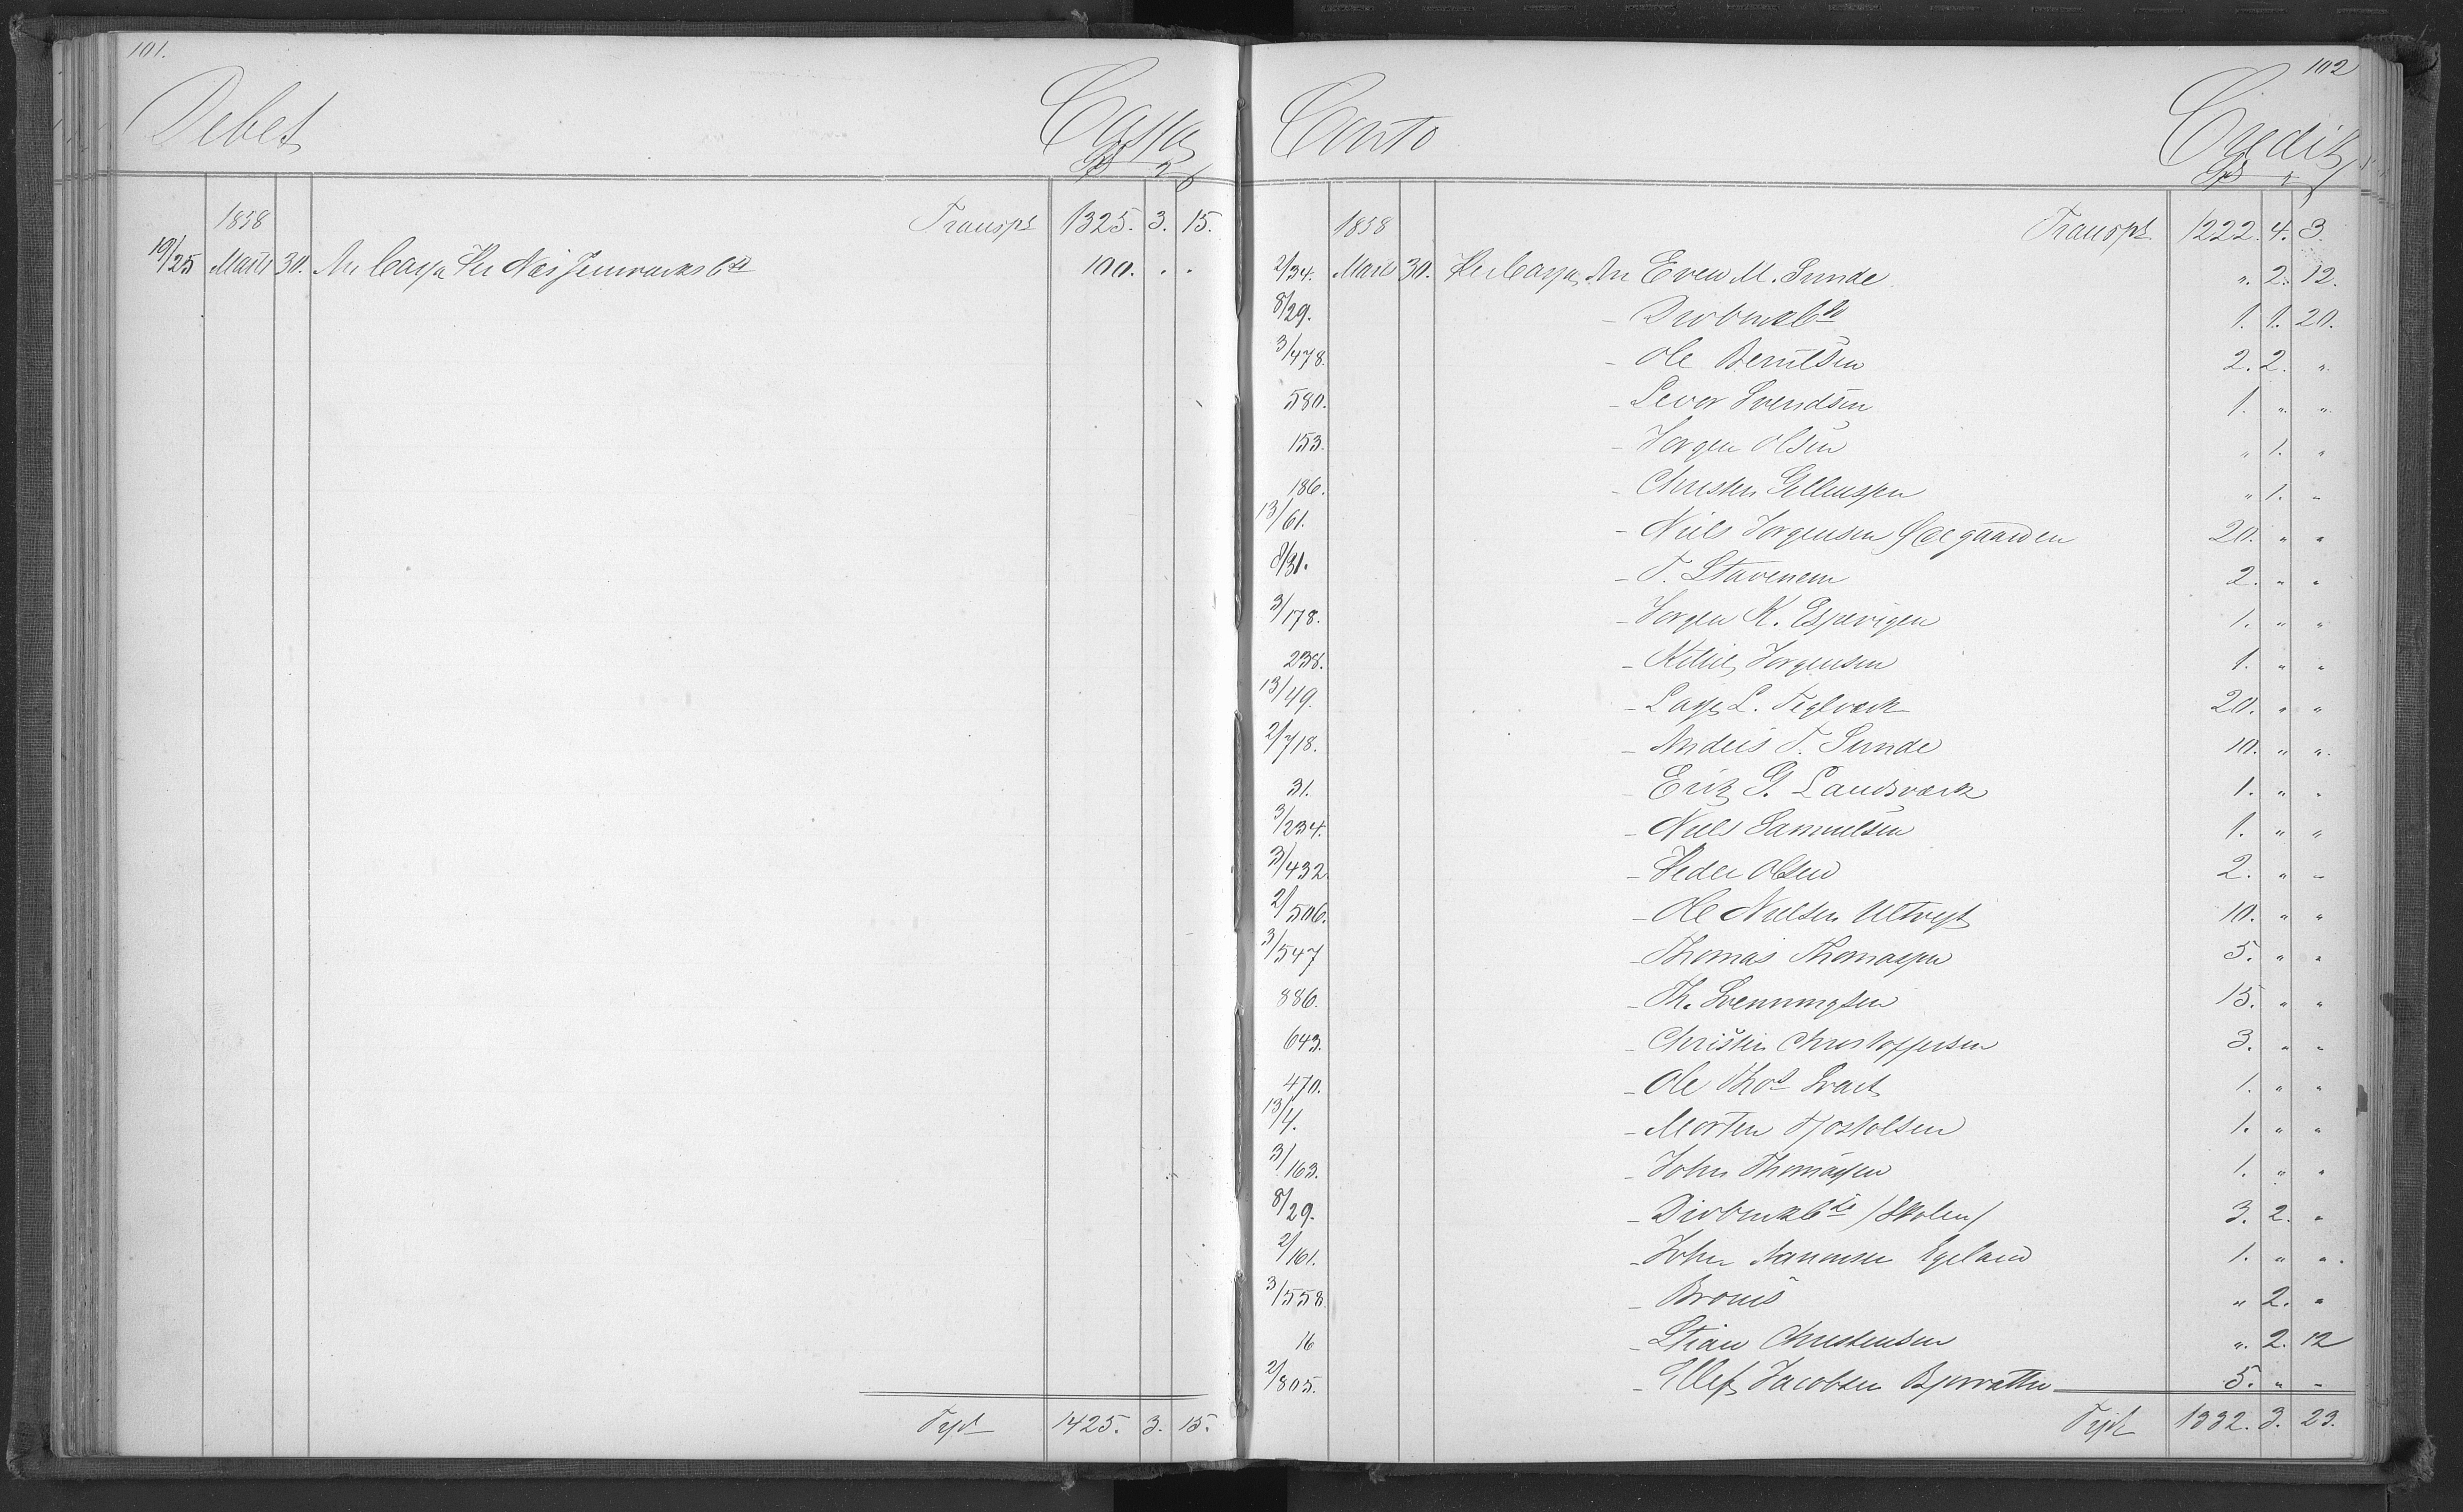 101.
Debet
Cassa
1858
Transpt 1325. 3. 15.
19/25 Marts 30. An Cassa Per Næs Jernværks Cto 100. . .
Tspt 1425. 3. 15.
102
Conto
Credit
1858
Transpt 1222. 4. 3.
2/34. Marts 30. Per Cassa An Even M. Sunde „. 2. 12.
8/29. - 1. 1. 20.
3/478. - Ole Berntsen 2. 2. „.
580. - Sevor Svendsen 1. „. „.
153. - Jørgen Olsen „ 1. „
186. - Christen Gellessen „ 1. „
13/61. - Niels Jørgensen 20. „ „
8/31. - T. Stavenem 2. „ „
3/178. - Jørgen K. Espevigen 1. „ „
238. - Kittil Jørgensen 1. „ „
13/49. - Lasse L. Teglværk 20. „ „
2/718. - Anders T. Sunde 10. „ „.
31. - Erik G. Landsværk 1. „ „
3/234. - Niels Samuelsen 1. „ „
3/432. - Peder Olsen 2. „ „
2/506. - Ole Nielsen 10. „ „
3/547 - Thomas Thomassen 5. „ „
886. - Th. Svenningsen 15. „ „
643. - Christen Christophersen 3. „ „
470. - Ole Thos Svart 1. „ „
13/4. - Morten Tjostolsen 1. „ „
3/163. - John Thomassen 1. „ „
8/29. - /Skolen/ 3. 2. „
2/161. - John Aanonsen Egeland 1. „ „.
3/558. - Broms „ 2. „
16 - Stian Christensen „. 2. 12
2/805. - Ellef Jacobsen 5. „ „
Tspt 1332. 3. 23.